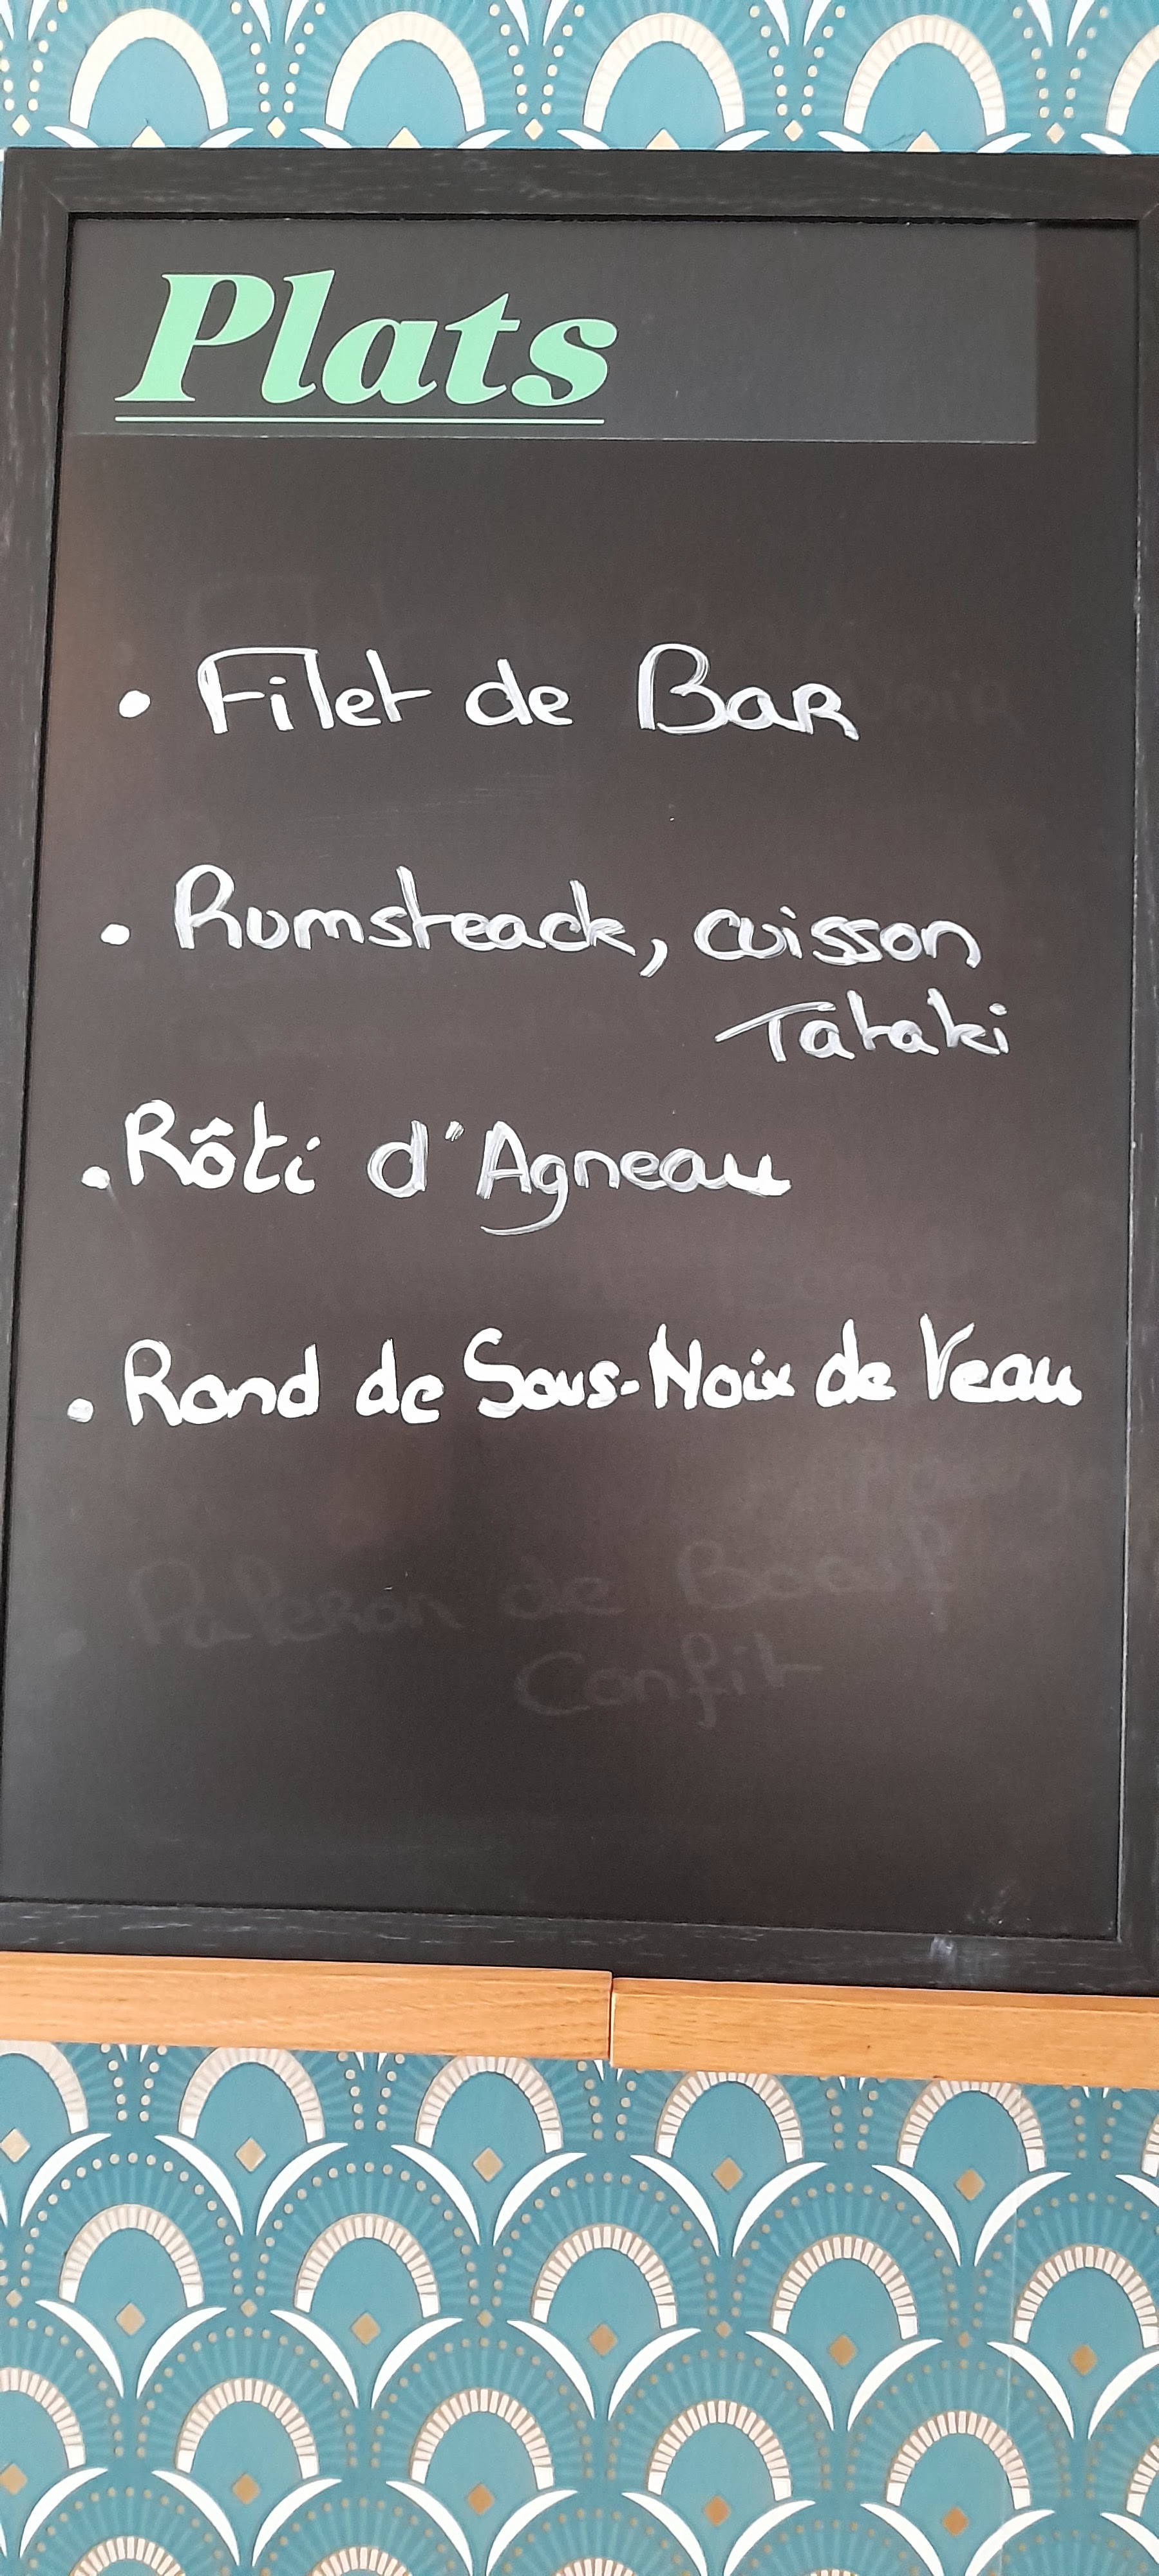 Plats
• Filet de Bar
• Rumsteack, cuisson
Tataki
• Rôti d'Agneau
• Rond de Sous-Noix de Veau
• Paleron de Boeuf
Confit